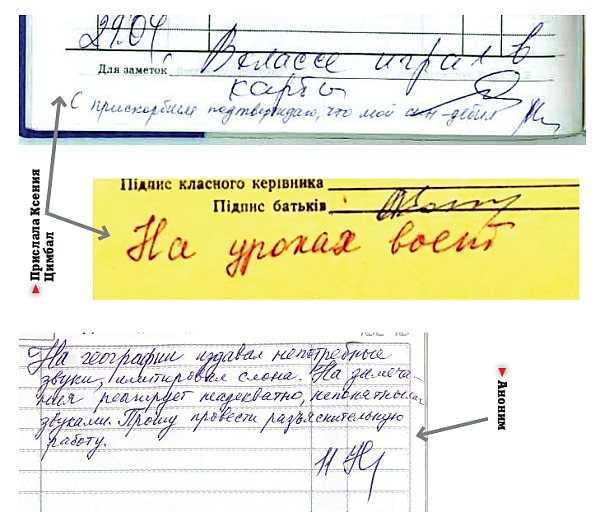 29.04
В классе играл в
Для заметок
карты
С прискорбием подтверждаю, что мой сын-дебил
Прислала Ксения
Цимбал
Підпис класного керівника
Підпис батьків
На уроках воет
На географии издавал непотребные
звуки, имитировал слона. На замеча-
ния реагирует неадекватно, непонятными
звуками. Прошу провести разъяснительную
работу.
Аноним